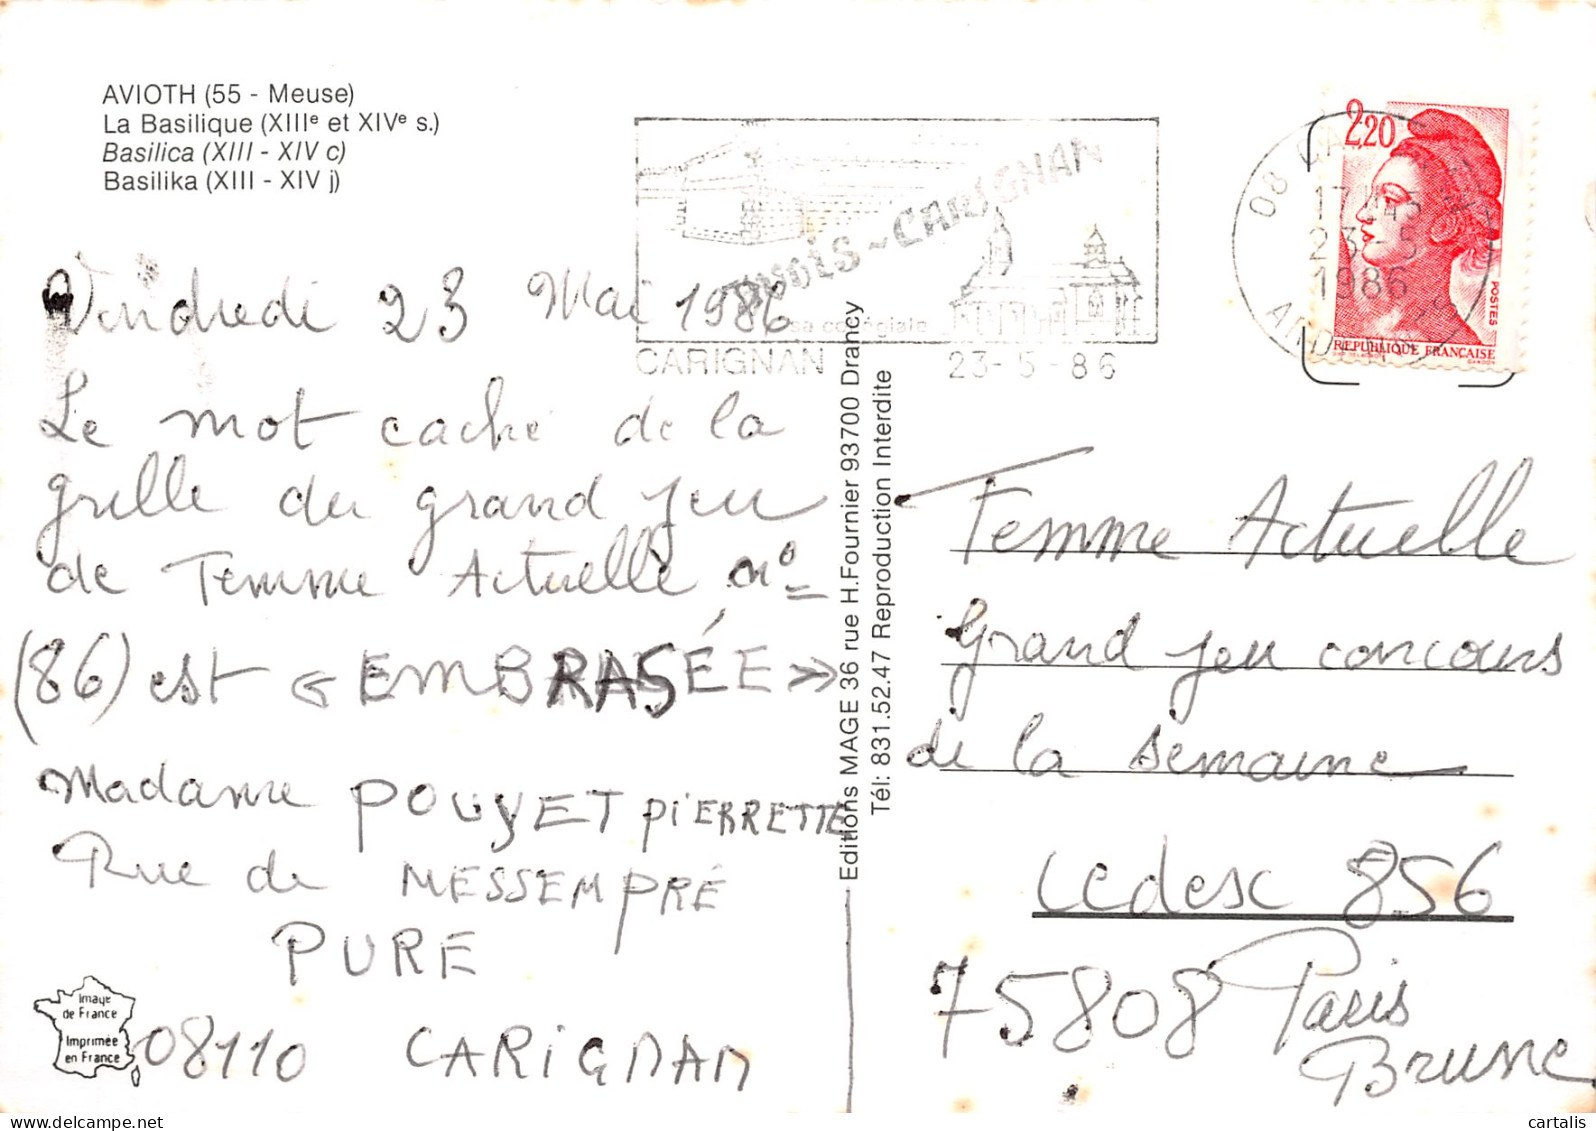 AVIOTH (55 - Meuse)
La Basilique (XIIIe et XIVe s.)
Basilica (XIII - XIV c)
Basilika (XIII - XIV j)
Vendredi 23 Mai 1986
Le mot caché de la
grille du grand jeu
de Femme Actuelle no
(86) est « EMBRASÉE »
Madame POUYET PiERRETTE
Rue de MESSEMPRÉ
PURE
08110 CARiGNAN
Image
de France
Imprimée
en France
Editions MAGE 36 rue H.Fournier 93700 Drancy
Tél: 831.52.47 Reproduction Interdite
YVOIS~CARIGNAN
sa collégiale
CARIGNAN 23-5-86
08
17H45
23-5
1986
2,20
POSTES
REPUBLIQUE FRANÇAISE
Femme Actuelle
Grand jeu concours
de la semaine
Cedex 856
75808 Paris
Brune
cartalis
www.delcampe.net